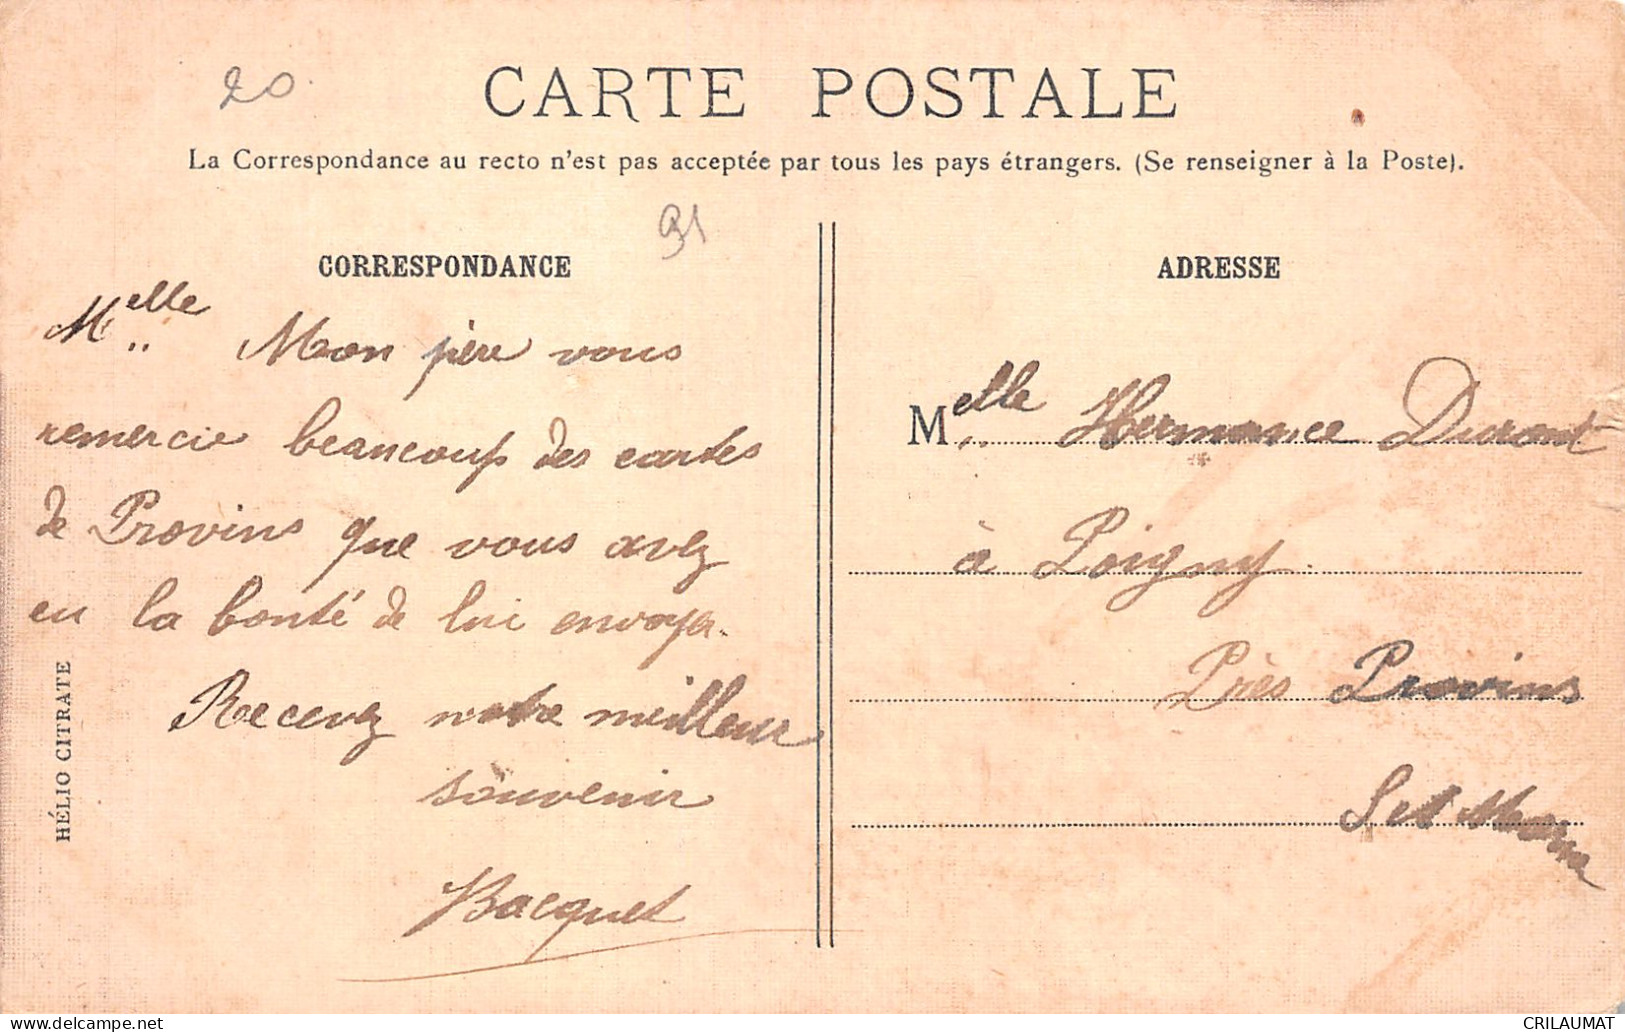 20
CARTE POSTALE
La Correspondance au recto n'est pas acceptée par tous les pays étrangers. (Se renseigner à la Poste).
91
CORRESPONDANCE
Melle Mon père vous
remercie beaucoup des cartes
de Provins que vous avez
eu la bonté de lui envoyer.
Recevez notre meilleur
souvenir
Bacquet
HÉLIO CITRATE
ADRESSE
Melle Hermance Durant
à Poigny.
Près Provins
S et Marne
CRILAUMAT